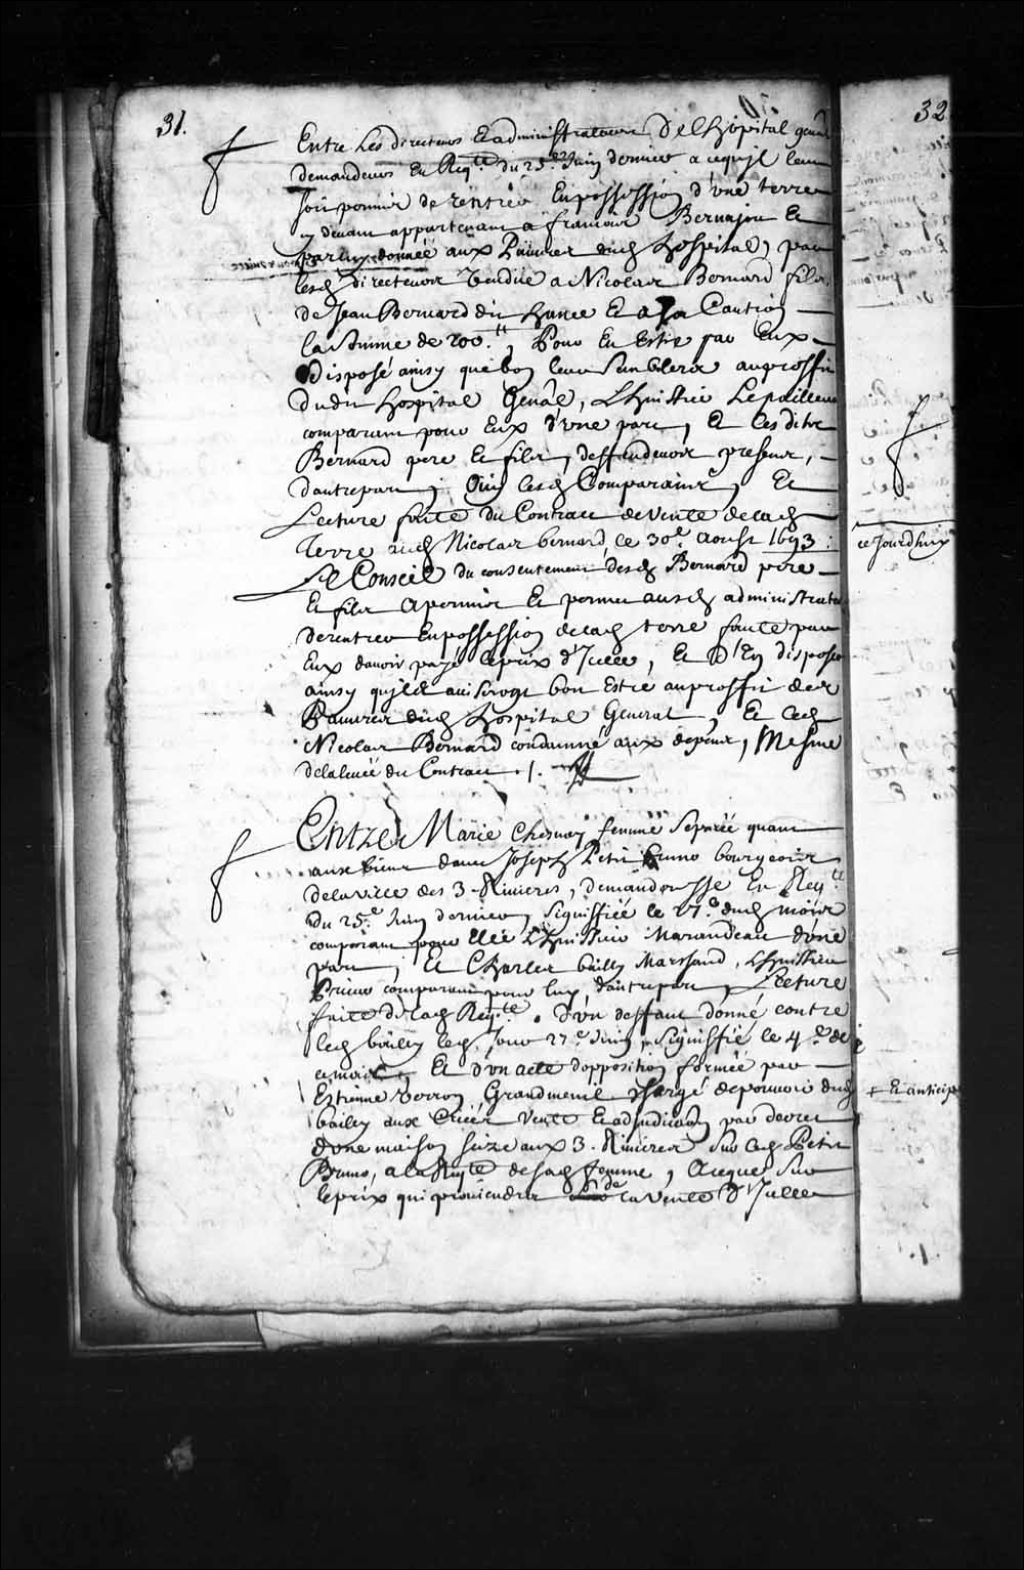 31.
Entre Les directeurs Et administrateurs De l'hôpital genâl
demandeurs En Reqte. du 25e. Juin dernier a ce qu'jl leur
soit permis de rentrer En possession d'une terre
cy devant appartenant a francois Bernajou Et
par luy donnée aux Pauvres dud hospital, par
lesd directeurs Vendüe a Nicolas Bernard fils
de Jean Bernard dit hance Et a sa Caution
la Somme de 200.tt, Pour En Estre par Eux
Disposé ainsy que bon leur Semblera au proffit
Dudit hospital Genâl, L'huissier Lepailleur
comparant pour Eux d'vne part, Et lesdits
Bernard pere Et fils, deffendeurs presens,
d'autre part, Oüy lesd Comparants, Et
Lecture faite du Contract de vente de lad
Terre aud Nicolas bernard, ce 30e. aoust 1693 :
Le Conseil du consentement desd Bernard pere
Et fils a permis Et permet ausd administrate
de rentrer En possession de lad terre faute par
Eux d'avoir payé le prix d'Jcelle, Et D'En disposer
ainsy qu'jls aviseront bon Estre au proffit des
Pauvres dud hospital General, Et led
Nicolas Bernard condamné aux depens, Mesme
de la levée du Contract ./.
Entre Marie Chesnay femme Separée quant
aux biens d'avec Joseph Petit Bruno bourgeois
de la ville des 3. Rivieres, demanderesse En Reqte
du 25.e Juin dernier, Signiffiée le 27.e dud mois
comparant pour Elle L'huissier Marandeau d'vne
part, Et Charles bailly Marchand, L'huissier
Prieur comparant pour luy, d'autre part, Lecture
faite de lad Reqte. d'vn deffaut donné contre
led bailly led. Jour 27.e Juin, Signiffié le 4.e de
ce mois, Et d'vn acte d'opposition formée par
Estienne Verron Grandmenil chargé de pouvoir dud
bailly aux Criées vente Et adjudicaon par decret
d'vne maison scize aux 3. Rivieres Sur led Petit
Bruno, a la Reqte de sad femme, a ce que Sur
le prix qui proviendra de la vente d'Jcelle
32
ce Jourdhuy
+ Et anticip